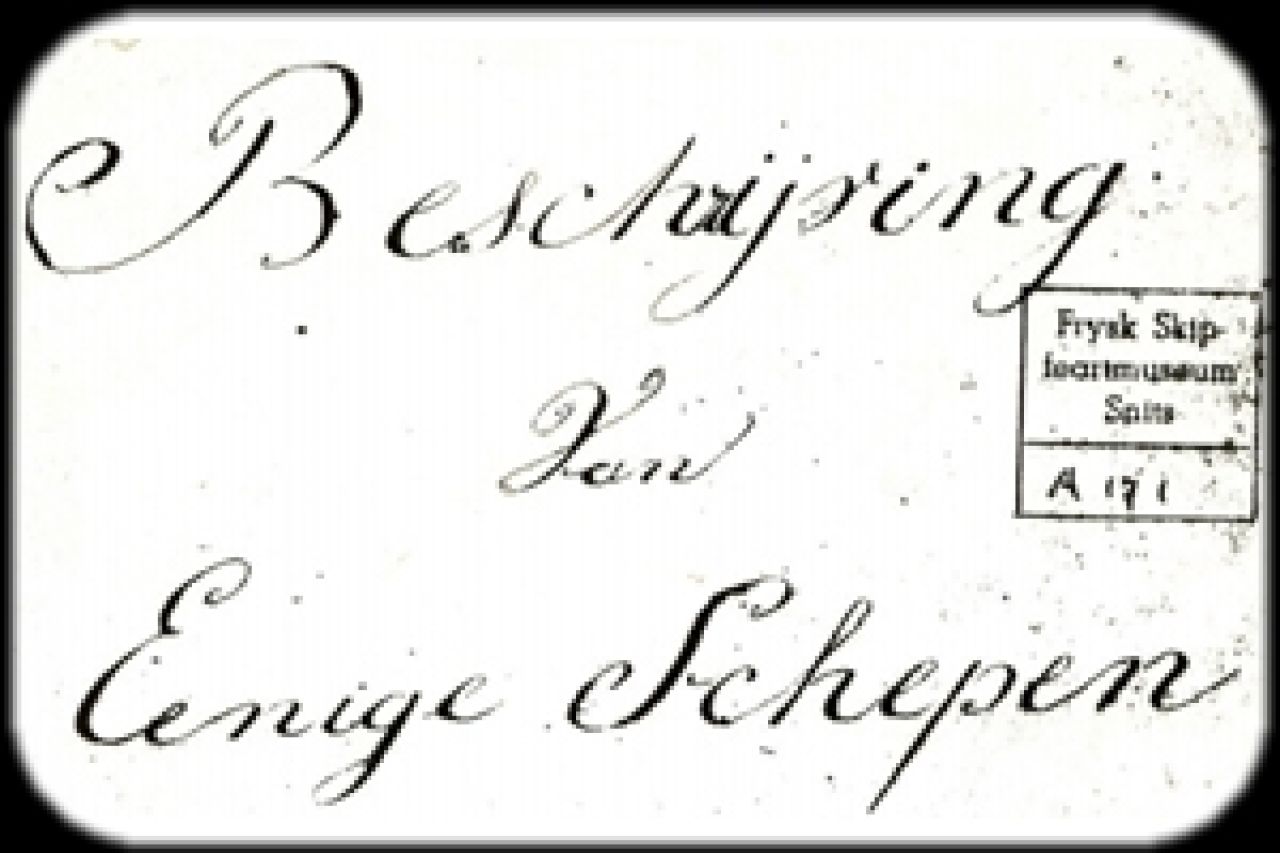 Beschrijving
Van
Eenige Schepen
Frysk Skip-
feartmuseum
Snits
A 171